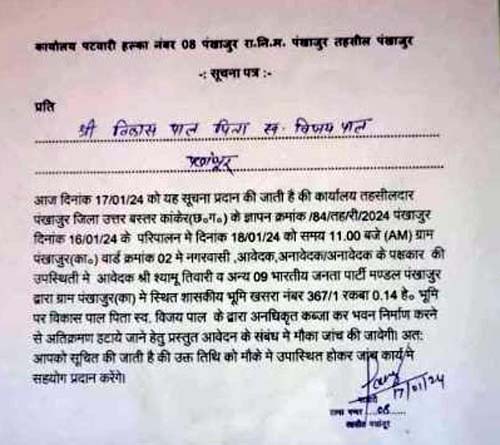 कार्यालय पटवारी हल्का नंबर 08 पंखाजुर रा.नि.म. पंखाजुर तहसील पंखाजुर
-: सूचना पत्र :-
प्रति
श्री विकास पाल पिता स्व. विजय पाल
आज दिनांक 17/01/24 को यह सूचना प्रदान की जाती है की कार्यालय तहसीलदार
पंखाजुर जिला उत्तर बस्तर कांकेर(छ०ग०) के ज्ञापन क्रमांक /84/तह/री/2024 पंखाजुर
दिनांक 16/01/24 के परिपालन मे दिनांक 18/01/24 को समय 11.00 बजे (AM) ग्राम
पंखाजुर(का०) वार्ड क्रमांक 02 मे नगरवासी ,आवेदक,अनावेदक/अनावेदक के पक्षकार की
उपस्थिती मे आवेदक श्री श्यामू तिवारी व अन्य 09 भारतीय जनता पार्टी मण्डल पंखाजुर
द्वारा ग्राम पंखाजुर(का) मे स्थित शासकीय भूमि खसरा नंबर 367/1 रकबा 0.14 हे० भूमि
पर विकास पाल पिता स्व. विजय पाल के द्वारा अनधिकृत कब्जा कर भवन निर्माण करने
से अतिक्रमण हटाये जाने हेतु प्रस्तुत आवेदन के संबंध मे मौका जांच की जावेगी। अत:
आपको सूचित की जाती है की उक्त तिथि को मौके मे उपास्थित होकर जांच कार्य मे
सहयोग प्रदान करेंगे।
17/01/24
08